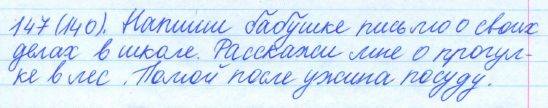 147(140). Напиши бабушке письмо о своих
делах в школе. Расскажи мне о прогул-
ке в лес. Помой после ужина посуду.